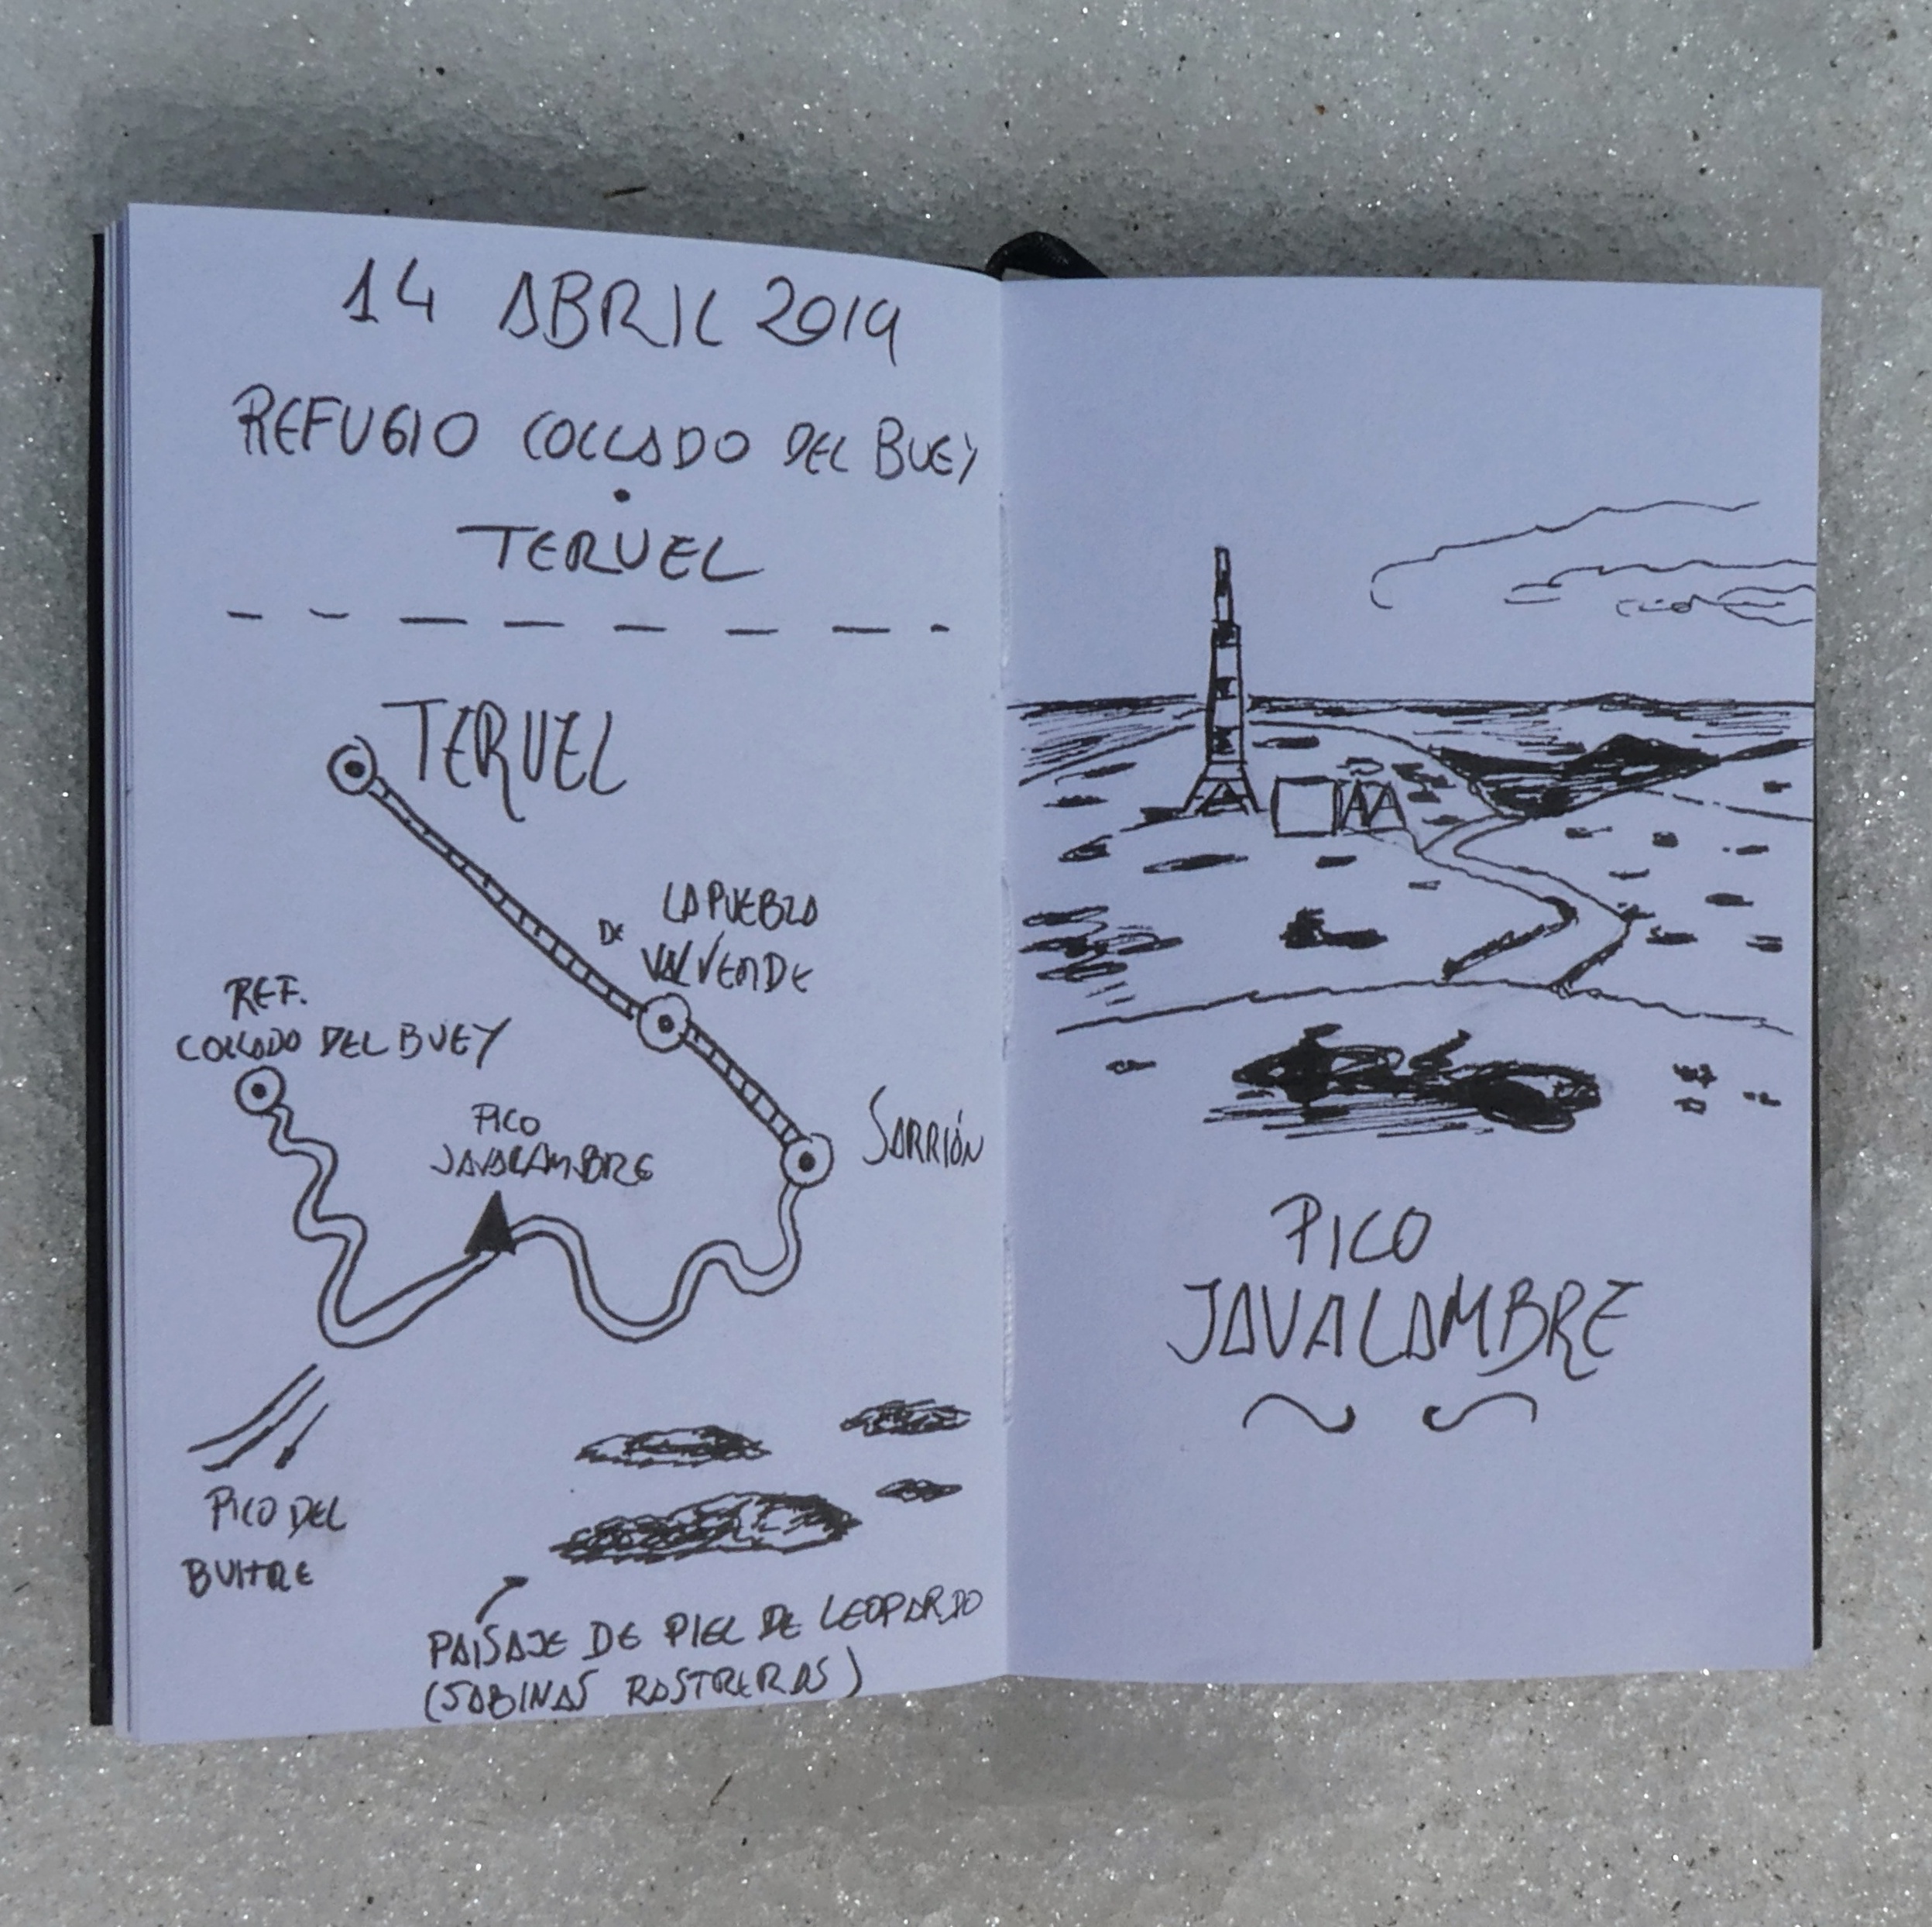 14 ABRIL 2019
REFUGIO COLLADO DEL BUEY
TERUEL
TERUEL
LA PUEBLA
DE VALVERDE
REF.
COLLADO DEL BUEY
PICO
JAVALAMBRE
SARRIÓN
PICO DEL
BUITRE
PAISAJE DE PIEL DE LEOPARDO
(SABINAS RASTRERAS)
PICO
JAVALAMBRE